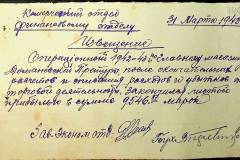 Коммерческий отдел
Финансовому отделу
31 Марта 1943
Извещение
Операционный 1942-43 г Главного магазина
после окончательных
расчетов и списания расходов и убытков по
торговой деятельности, закончился чистой
прибылью в сумме 9346. марок
Зав. Эконом. отд.